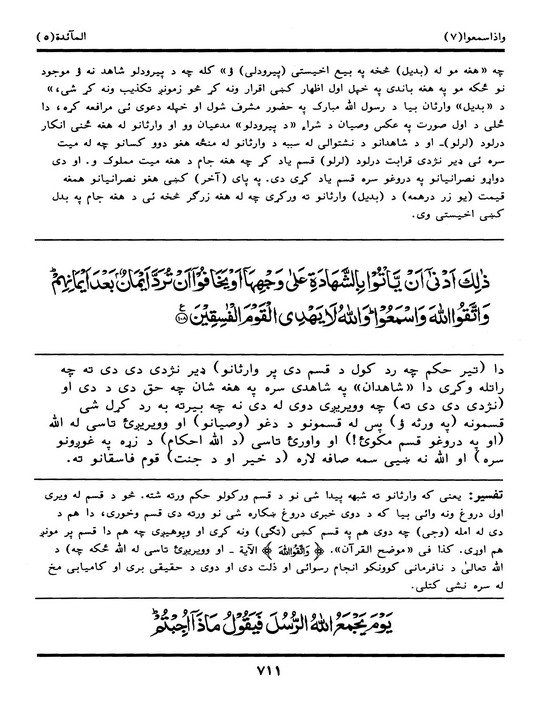 واذاسمعوا(۷) المآئدة(۵)
چه «هغه مو له (بدیل) څخه په بیع اخیستی (پیرودلی) ؤ» کله چه د پیرودلو شاهد نه ؤ موجود
نو څکه مو په هغه باندی په خپل اول اظهار کښی اقرار ونه کړ څو زمونږ تکذیب ونه کړ شی،»
د «بدیل» وارثان بیا د رسول الله مبارک په حضور مشرف شول او خپله دعوی ئی مرافعه کړه، دا
ځلی د اول صورت په عکس وصیان د شراء «د پیرودلو» مدعیان وو او وارثانو له هغه ځنی انکار
درلود (لرلو)- او د شاهدانو د نشتوالی له سببه د وارثانو له منځه هغو دوو کسانو چه له میت
سره ئی ډیر نژدی قرابت درلود (لرلو) قسم یاد کړ چه هغه جام د هغه میت مملوک و. او دی
دواړو نصرانیانو په دروغو سره قسم یاد کړی دی. په پای (آخر) کښی هغو نصرانیانو همغه
قیمت (یو زر درهمه) د (بدیل) وارثانو ته ورکړی چه له هغه زرگر څخه ئی د هغه جام په بدل
کښی اخیستی وی.
ذٰلِكَ اَدْنٰۤى اَنْ يَّاْتُوْا بِالشَّهَادَةِ عَلٰى وَجْهِهَاۤ اَوْ يَخَافُوْۤا اَنْ تُرَدَّ اَيْمَانٌۢ بَعْدَ اَيْمَانِهِمْؕ
وَاتَّقُوا اللهَ وَاسْمَعُوْاؕ وَاللهُ لَا يَهْدِى الْقَوْمَ الْفٰسِقِيْنَ ۝۱۰۸
دا (تیر حکم چه رد کول د قسم دی پر وارثانو) ډیر نژدی دی دی ته چه
راتله وکړی دا «شاهدان» په شاهدی سره په هغه شان چه حق دی د دی او
(نژدی دی دی ته) چه وویریږی دوی له دی نه چه بیرته به رد کړل شی
قسمونه (په ورثه ؤ) پس له قسمونو د دغو (وصیانو) او وویریږی تاسی له الله
(او په دروغو قسم مکوئ!) او واورئ تاسی (د الله احکام) د زړه په غوږونو
سره) او الله نه ښیی سمه صافه لاره (د خیر او د جنت) قوم فاسقانو ته.
تفسیر: یعنی که وارثانو ته شبهه پیدا شی نو د قسم ورکولو حکم ورته شته. څو د قسم له ویری
اول دروغ ونه وائی بیا که د دوی خبری دروغ ښکاره شی نو ورته دی قسم وخوری، دا هم د
دی له امله (وجی) چه دوی هم په قسم کښی (تګی) ونه کړی او وپوهیږی چه هم دا قسم پر مونږ
هم اوړی. کذا فی «موضح القرآن». ﴿وَاتَّقُوا اللهَ﴾ الآیة ـ او وویریږئ تاسی له الله څکه چه) د
الله تعالیٰ د نافرمانی کوونکو انجام رسوائی او ذلت دی او دوی د حقیقی بری او کامیابی مخ
له سره نشی کتلی.
يَوْمَ يَجْمَعُ اللهُ الرُّسُلَ فَيَقُوْلُ مَاذَاۤ اُجِبْتُمْؕ
۷۱۱